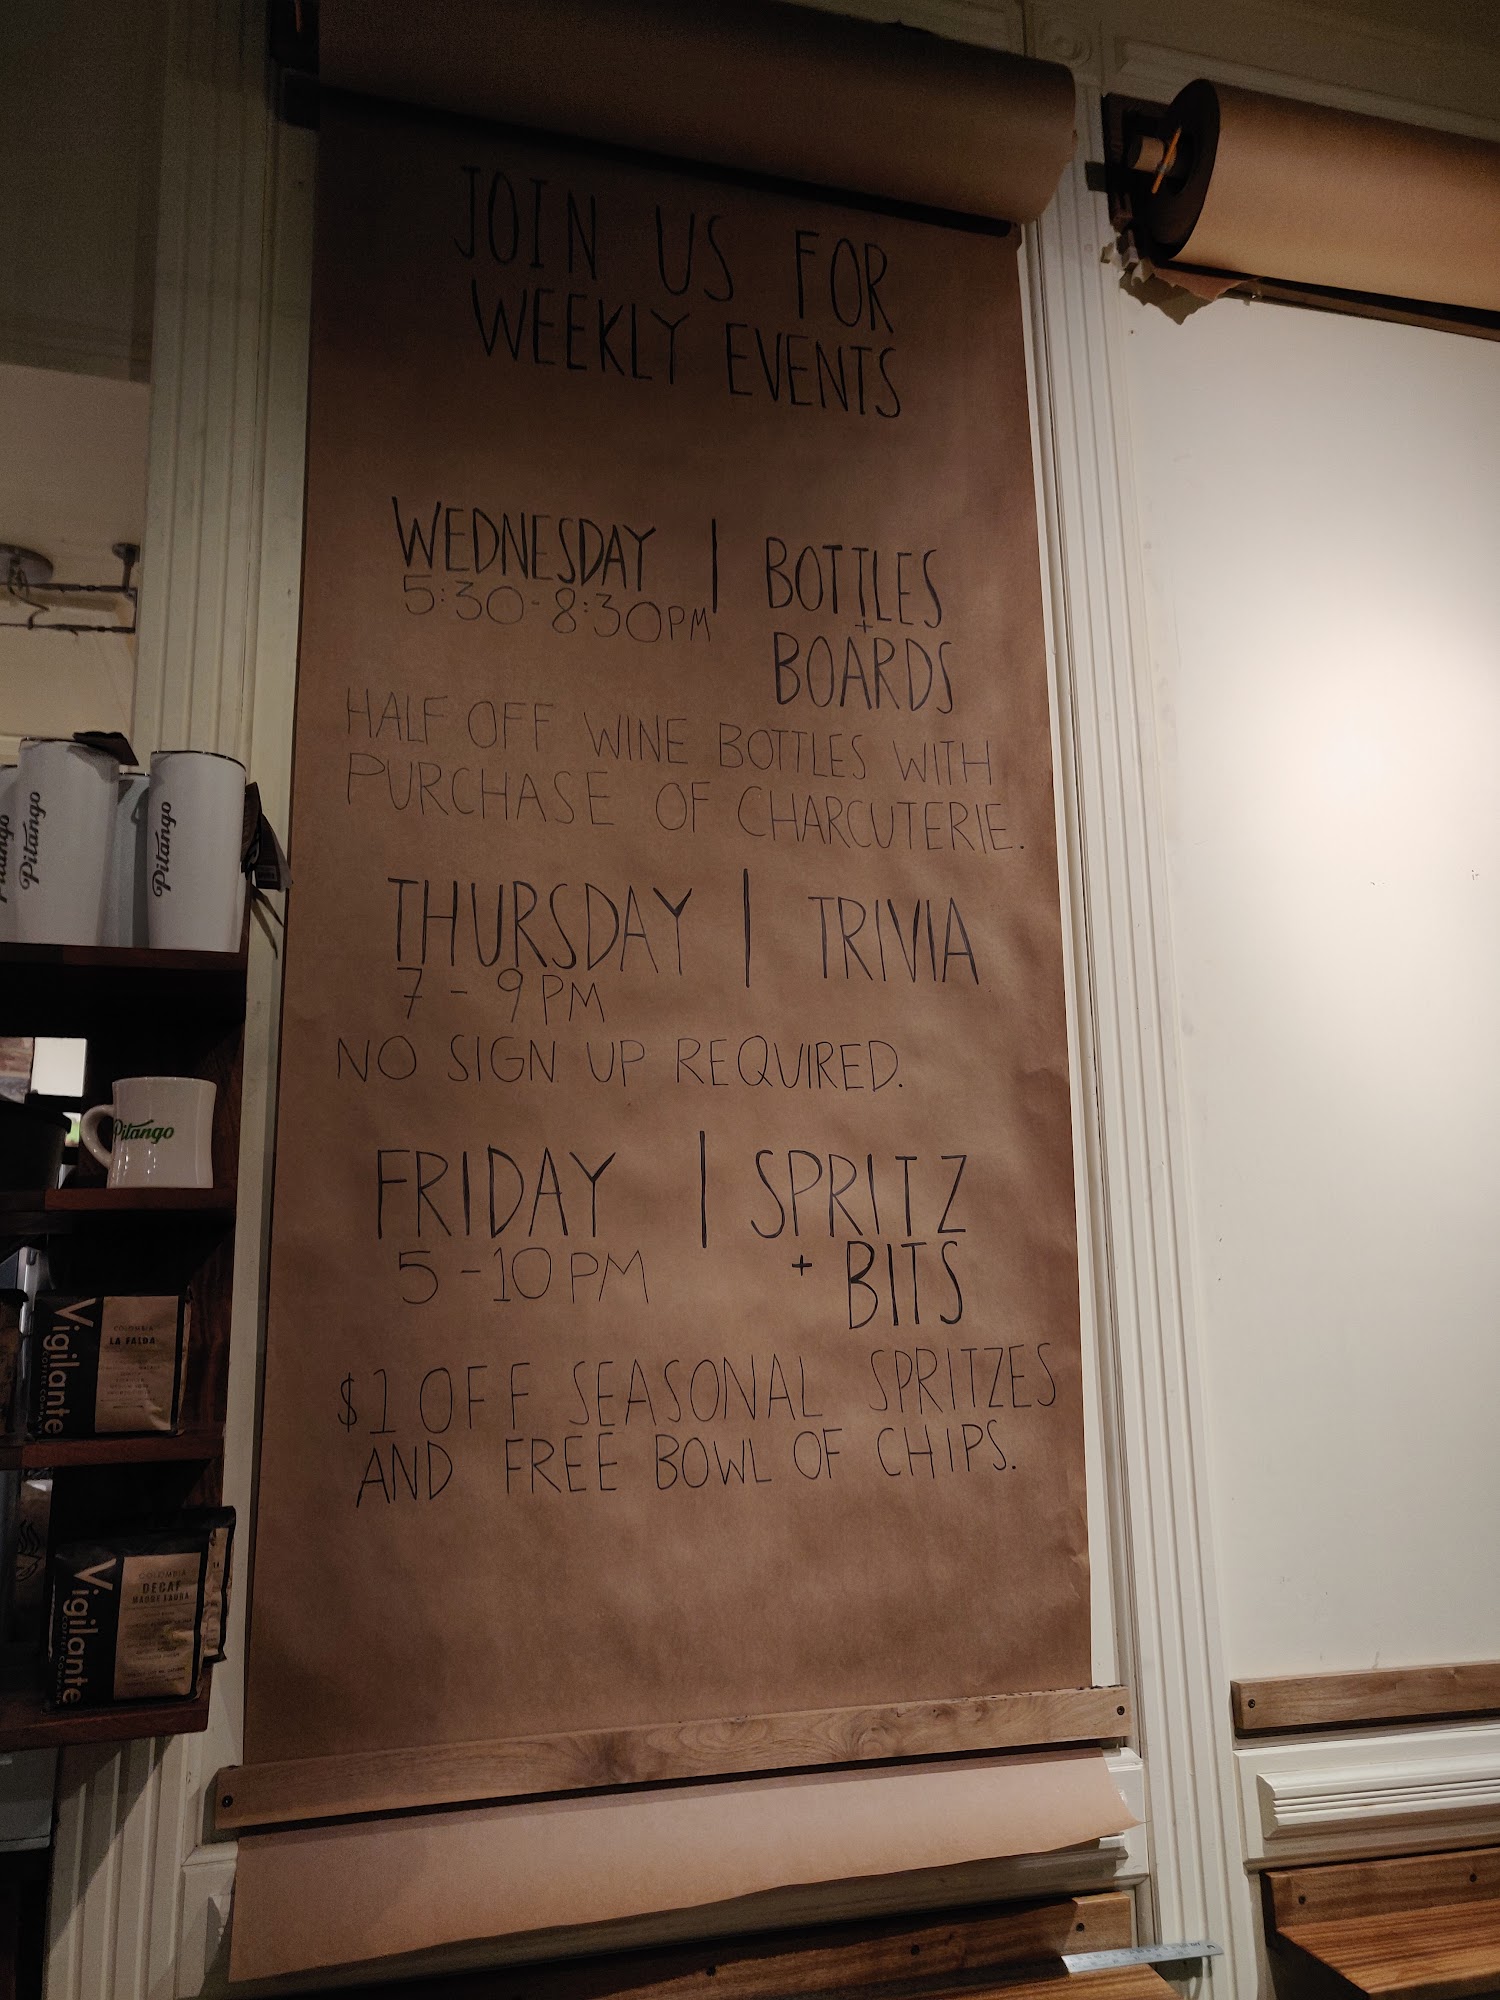 JOIN US FOR
WEEKLY EVENTS
WEDNESDAY | BOTTLES
5:30-8:30PM +
BOARDS
HALF OFF WINE BOTTLES WITH
PURCHASE OF CHARCUTERIE.
THURSDAY | TRIVIA
7-9PM
NO SIGN UP REQUIRED.
FRIDAY | SPRITZ
5-10PM + BITS
$1 OFF SEASONAL SPRITZES
AND FREE BOWL OF CHIPS.
Pitango
Pitango
Pitango
Vigilante
COFFEE COMPANY
COLOMBIA
LA FALDA
Vigilante
COFFEE COMPANY
COLOMBIA
DECAF